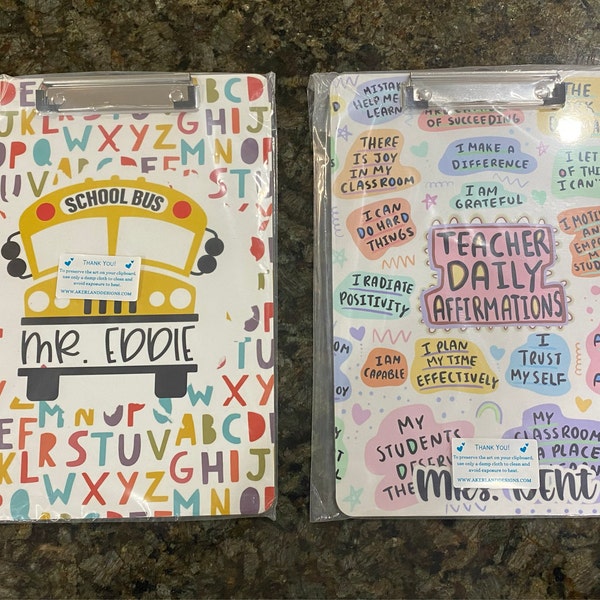 SCHOOL BUS
THANK YOU!
To preserve the art on your clipboard,
use only a damp cloth to clean and
avoid exposure to heat.
WWW.AKERLANDDESIGNS.COM
MR. EDDIE
HELP ME
LEARN
OF SUCCEEDING
THERE
IS JOY
IN MY
CLASSROOM
I MAKE A
DIFFERENCE
I LET
OF THI
I CAN'T
I AM
GRATEFUL
I CAN
DO HARD
THINGS
TEACHER
DAILY
AFFIRMATIONS
I MOTI
AN
EMPO
M
STUD
I RADIATE
POSITIVITY
I AM
CAPABLE
I PLAN
MY TIME
EFFECTIVELY
I
TRUST
MYSELF
MY
STUDENTS
DESERV
THE
MY
CLASSROOM
A PLACE
THANK YOU!
To preserve the art on your clipboard,
use only a damp cloth to clean and
avoid exposure to heat.
WWW.AKERLANDDESIGNS.COM
Mrs. Went